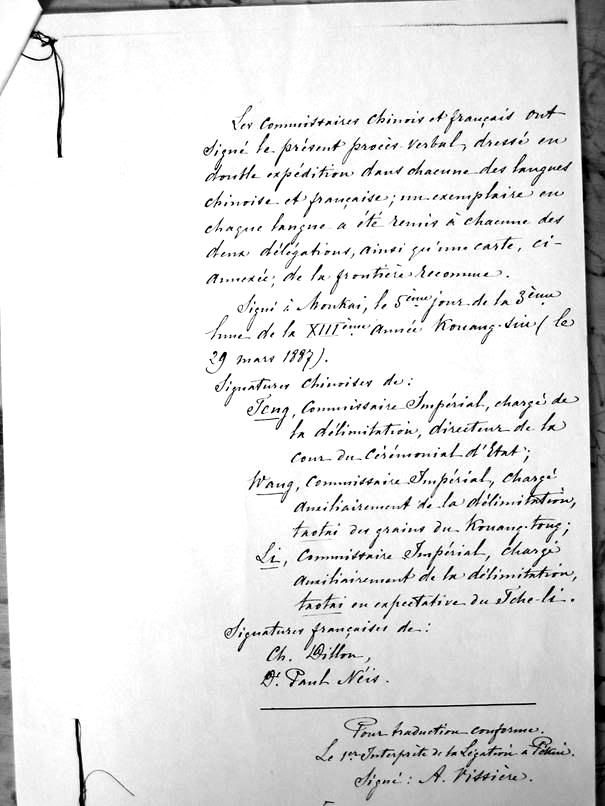 Les Commissaires chinois et français ont
signé le présent procès-verbal, dressé en
double expédition dans chacune des langues
chinoise et française; un exemplaire en
chaque langue a été remis à chacune des
deux délégations, ainsi qu'une carte, ci-
annexée, de la frontière reconnue.
Signé à Monkaï, le 5ème jour de la 3ème
lune de la XIIIème année Kouang-siu (le
29 mars 1887).
Signatures chinoises de:
Teng, Commissaire Impérial, chargé de
la délimitation, directeur de la
cour du Cérémonial d'Etat;
Wang, Commissaire Impérial, chargé
auxiliairement de la délimitation,
taotai des grains du Kouang-tong;
Li, Commissaire Impérial, chargé
auxiliairement de la délimitation,
taotai en expectative du Tche-li.
Signatures françaises de:
Ch. Dillon,
Dr Paul Néis.
Pour traduction conforme.
Le 1er Interprète de la Légation à Pékin.
Signé: A. Vissière.